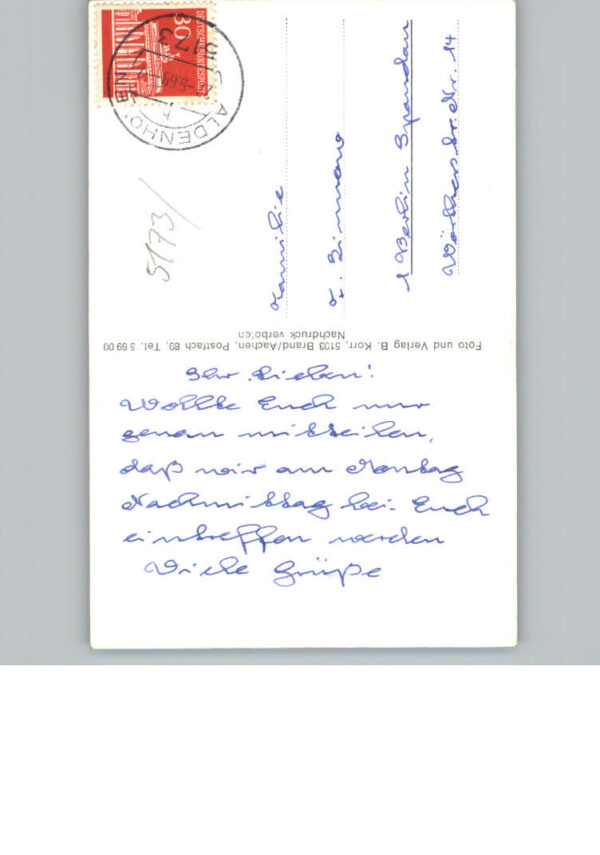 Ihr Lieben!
Wollte Euch nur
genau mitteilen,
daß wir am Montag
Nachmittag bei Euch
eintreffen werden
Viele Grüße
Foto und Verlag B. Korr, 5103 Brand/Aachen, Postfach 89, Tel. 5 69 00
Nachdruck verboten
Familie
1 Berlin Spandau
Str. Nr. 14
5173/
DEUTSCHE BUNDESPOST
30
5173
ALDENHOVEN